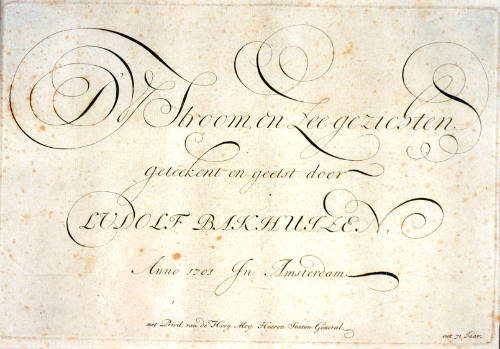 D'Y Stroom, en Zee gezichten
geteekent en geetst door
LUDOLF BAKHUIZEN.
Anno 1701 In Amsterdam
met Privil. van de Hoog Mog. Heeren Staten Generael.
out 71 Jaar.